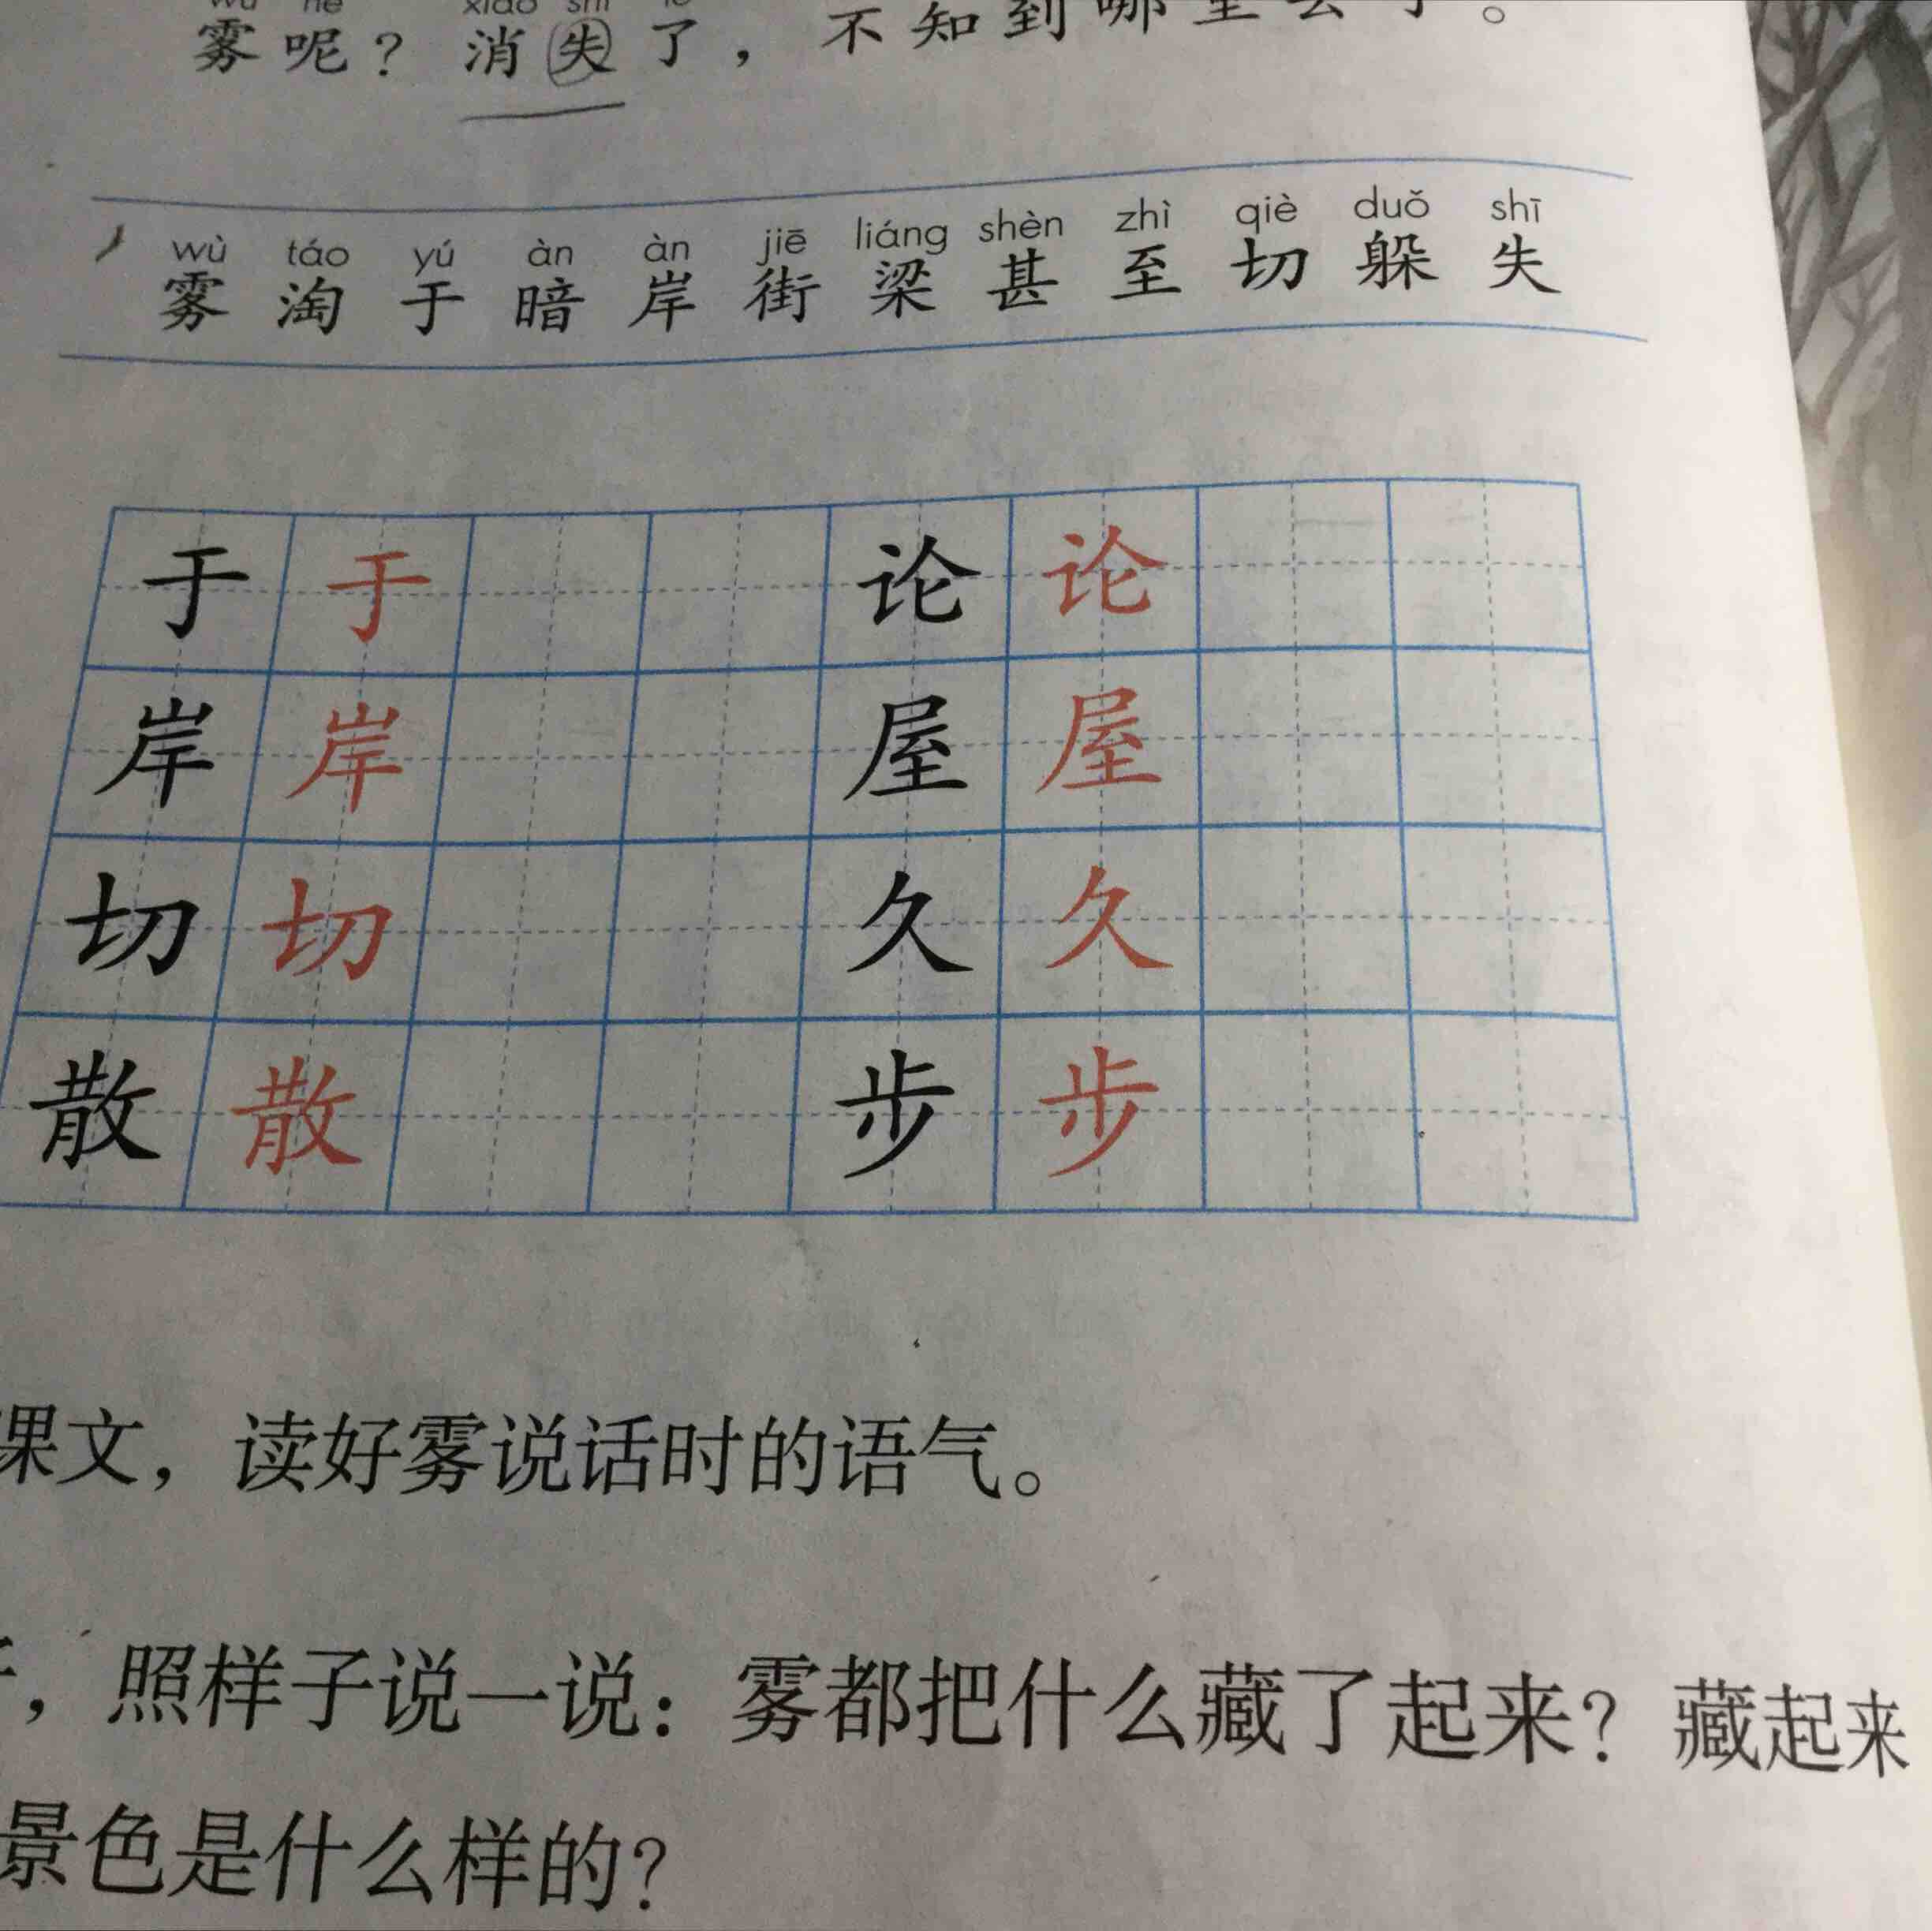 雾呢？消失了，不知到哪里去了。
wù táo yú àn àn jiē liáng shèn zhì qiè duǒ shī
雾 淘 于 暗 岸 街 梁 甚 至 切 躲 失
于 于 论 论
岸 岸 屋 屋
切 切 久 久
散 散 步 步
课文，读好雾说话时的语气。
，照样子说一说：雾都把什么藏了起来？藏起来
景色是什么样的？